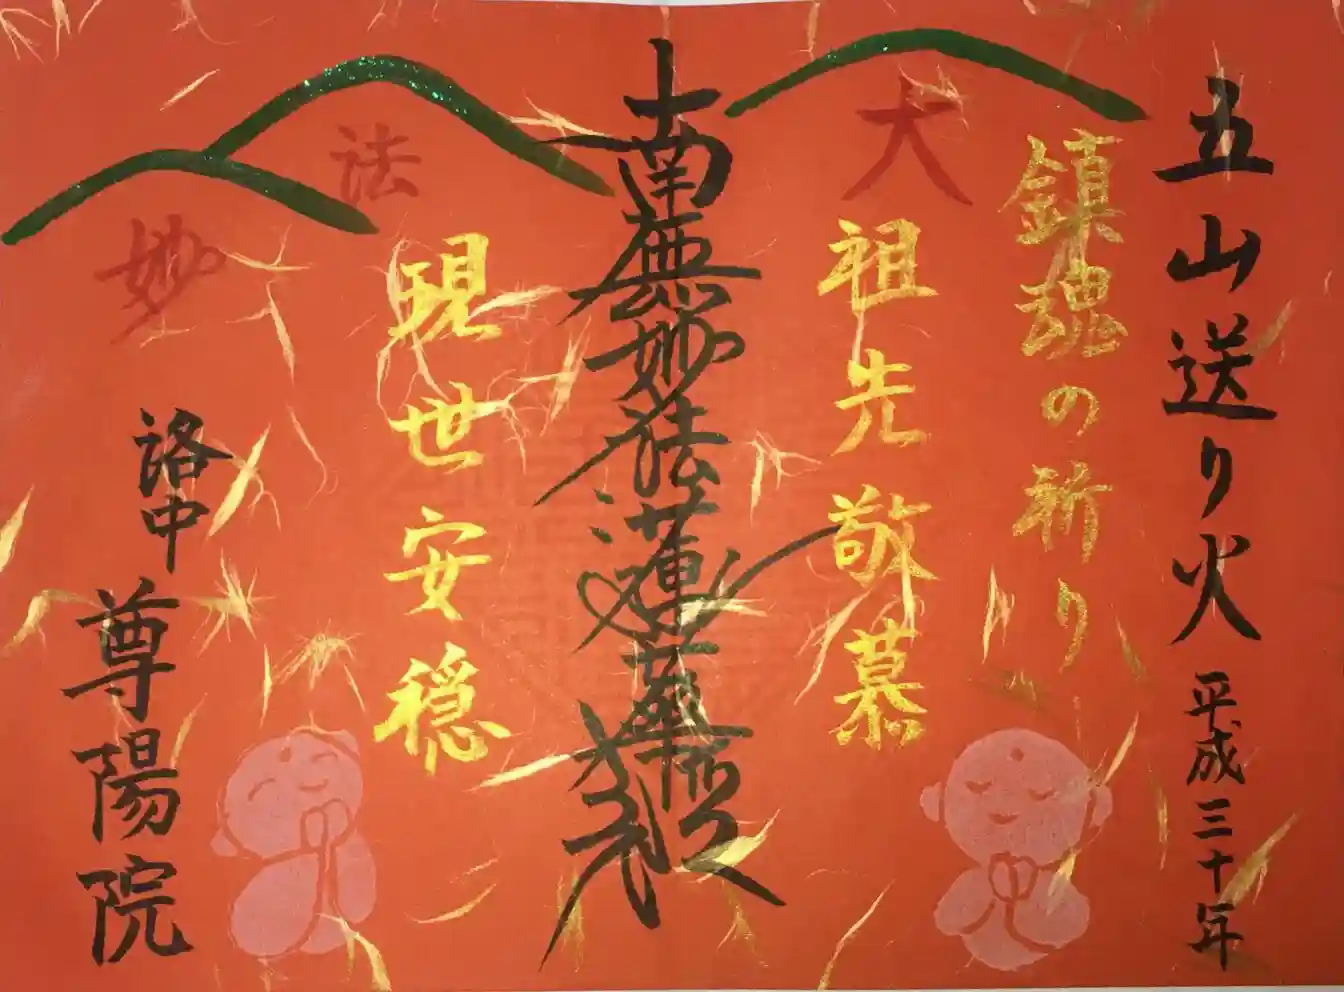 五山送り火 平成三十年
鎮魂の祈り
大
祖先敬慕
南無妙法蓮華経
法
現世安穏
妙
洛中 尊陽院